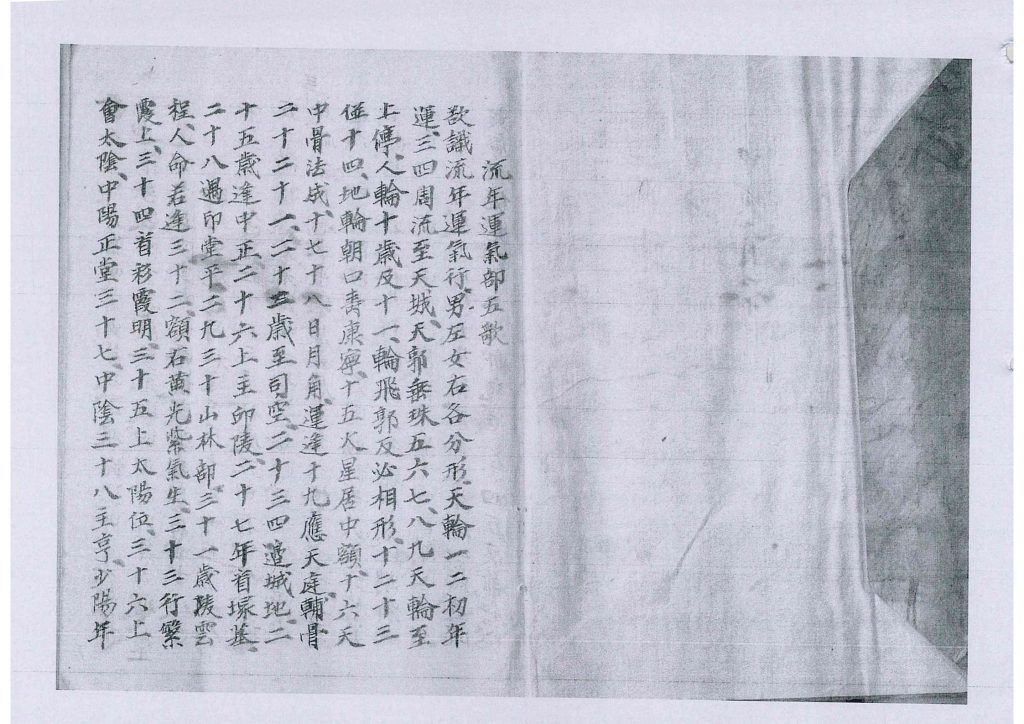 流年運氣部五歌
欲識流年運氣行、男左女右各分形、天輪一二初年
運、三四周流至天城、天郭垂珠五六七、八九天輪至
上停、人輪十歲及十一、輪飛郭反必相形、十二十三
並十四、地輪朝口壽康寧、十五火星居中額、十六天
中骨法成、十七十八日月角、運逢十九應天庭、輔骨
二十二十一、二十二歲至司空、二十三四邊城地、二
十五歲逢中正、二十六上主卯陵、二十七年首塚墓、
二十八遇印堂平、二九三十山林部、三十一歲陵雲
程、人命若逢三十二、額右黃光紫氣生、三十三行繁
霞上、三十四首彩霞明、三十五上太陽位、三十六上
會太陰、中陽正堂三十七、中陰三十八主亨、少陽年